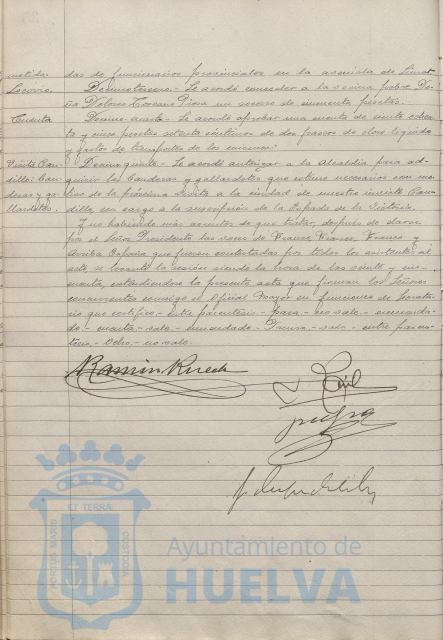 das de funcionarios provinciales en la
Socorro. Decimotercero.- Se acordó conceder a la vecina pobre Do-
ña Dolores Toscano un socorro de cincuenta pesetas.
Cuenta Decimo cuarto.- Se acordó aprobar una cuenta de ciento
y cinco pesetas setenta céntimos de dos frascos de cloro líquido
y gastos de transportes de los mismos.
Visita Cau- Decimo quinto.- Se acordó autorizar a la Alcaldía para ad-
dillo: Ban- quirir las banderas y gallardetes que estime necesarios con mo-
deras y ga- tivo de la próxima visita a la ciudad de nuestro invicto Cau-
llardetes. dillo, con cargo a la suscripción de la Espada de la Victoria.
Y no habiendo más asuntos de que tratar, después de darse
por el Señor Presidente las voces de Franco, Franco, Franco y
Arriba España que fueron contestadas por todos los asistentes al
acto se levantó la sesión siendo la hora de las veinte y cin-
cuenta, extendiéndose la presente acta que firman los Señores
concurrentes conmigo el Oficial Mayor en funciones de Secreta-
rio que certifico.- entre paréntesis.- para.- no vale.- enmenda-
do.- cuenta.- vale.- enmendado.- vale.- entre parén-
tesis.- ocho.- no vale.
Ramón Rueda
PORTUS MARIS
ET TERRÆ
CUSTODIA
Ayuntamiento de
HUELVA